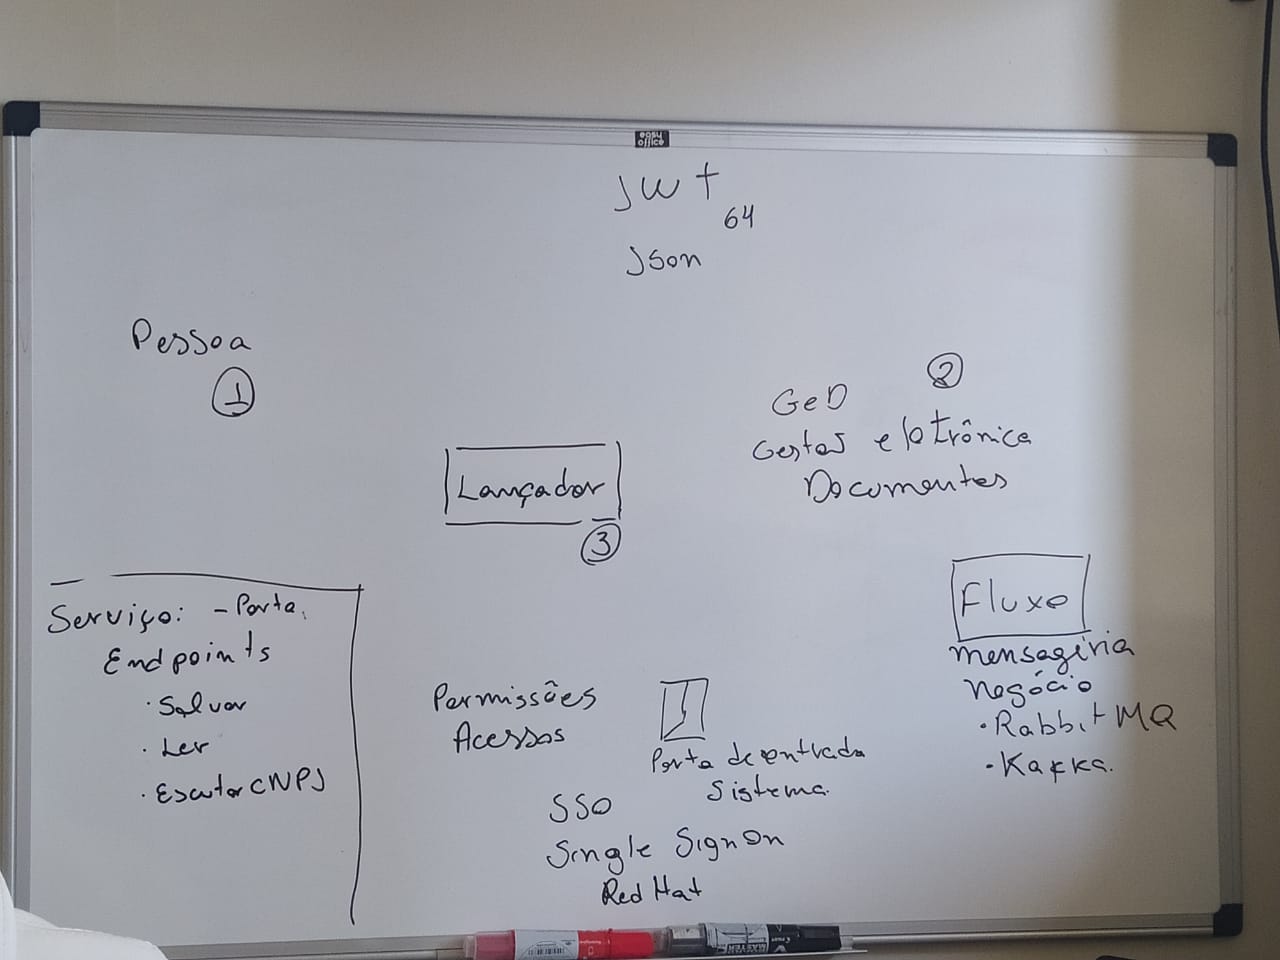 easy
office
JWT
64
Json
Pessoa
1
2
GeD
Gestão eletrônica
Documentos
Lançador
3
Serviço: - Porta
Endpoints
· Salvar
· Ler
· Escutar CNPJ
Permissões
Acessos
Porta de entrada
Sistema.
SSO
Single SignOn
Red Hat
Fluxo
mensageria
negócio
· RabbitMQ
· Kafka.